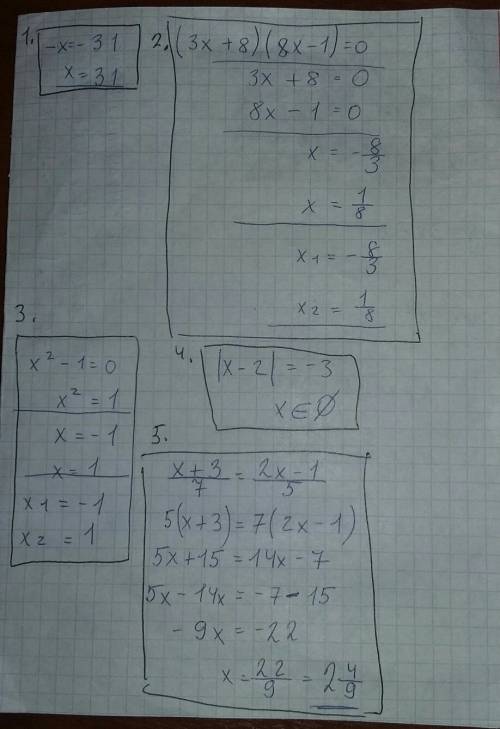 1.
-x=-31
x=31
2.
(3x+8)(8x-1)=0
3x+8=0
8x-1=0
x=-8/3
x=1/8
x1=-8/3
x2=1/8
3.
x²-1=0
x²=1
x=-1
x=1
x1=-1
x2=1
4.
|x-2|=-3
x∈∅
5.
x+3/7=2x-1/5
5(x+3)=7(2x-1)
5x+15=14x-7
5x-14x=-7-15
-9x=-22
x=22/9=2 4/9